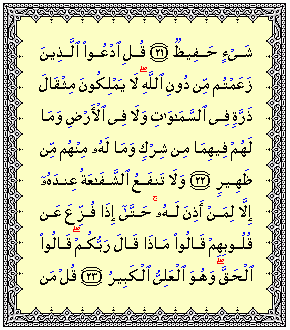 شَىْءٍ حَفِيظٌ ﴿٢١﴾ قُلِ ٱدْعُوا۟ ٱلَّذِينَ
زَعَمْتُم مِّن دُونِ ٱللَّهِ ۖ لَا يَمْلِكُونَ مِثْقَالَ
ذَرَّةٍ فِى ٱلسَّمَـٰوَٰتِ وَلَا فِى ٱلْأَرْضِ وَمَا
لَهُمْ فِيهِمَا مِن شِرْكٍ وَمَا لَهُۥ مِنْهُم مِّن
ظَهِيرٍ ﴿٢٢﴾ وَلَا تَنفَعُ ٱلشَّفَـٰعَةُ عِندَهُۥٓ
إِلَّا لِمَنْ أَذِنَ لَهُۥ ۚ حَتَّىٰٓ إِذَا فُزِّعَ عَن
قُلُوبِهِمْ قَالُوا۟ مَاذَا قَالَ رَبُّكُمْ ۖ قَالُوا۟
ٱلْحَقَّ ۖ وَهُوَ ٱلْعَلِىُّ ٱلْكَبِيرُ ﴿٢٣﴾ قُلْ مَن